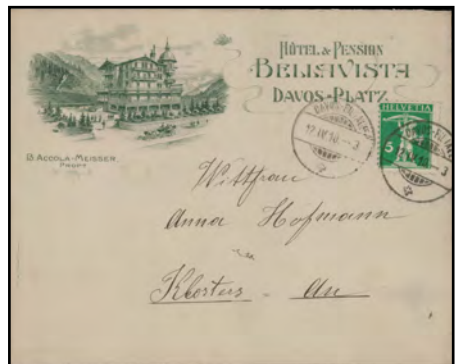 HÔTEL & PENSION
BELLAVISTA
DAVOS-PLATZ
B. ACCOLA-MEISSER
PROPR
12.IV.10.-3
HELVETIA
5
Wittfrau
Anna Hofmann
in
Klosters - Aeu